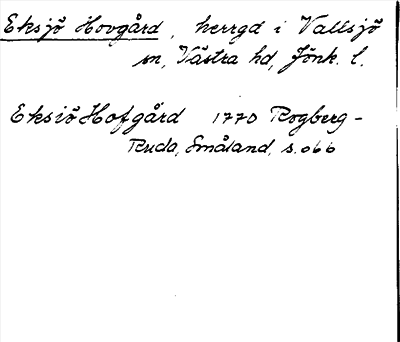 Eksjö Hovgård, herrgd i Vallsjö
sn, Västra hd, Jönk. l.
Eksiö Hofgård 1770 Rogberg-
Ruda, Småland, s.066